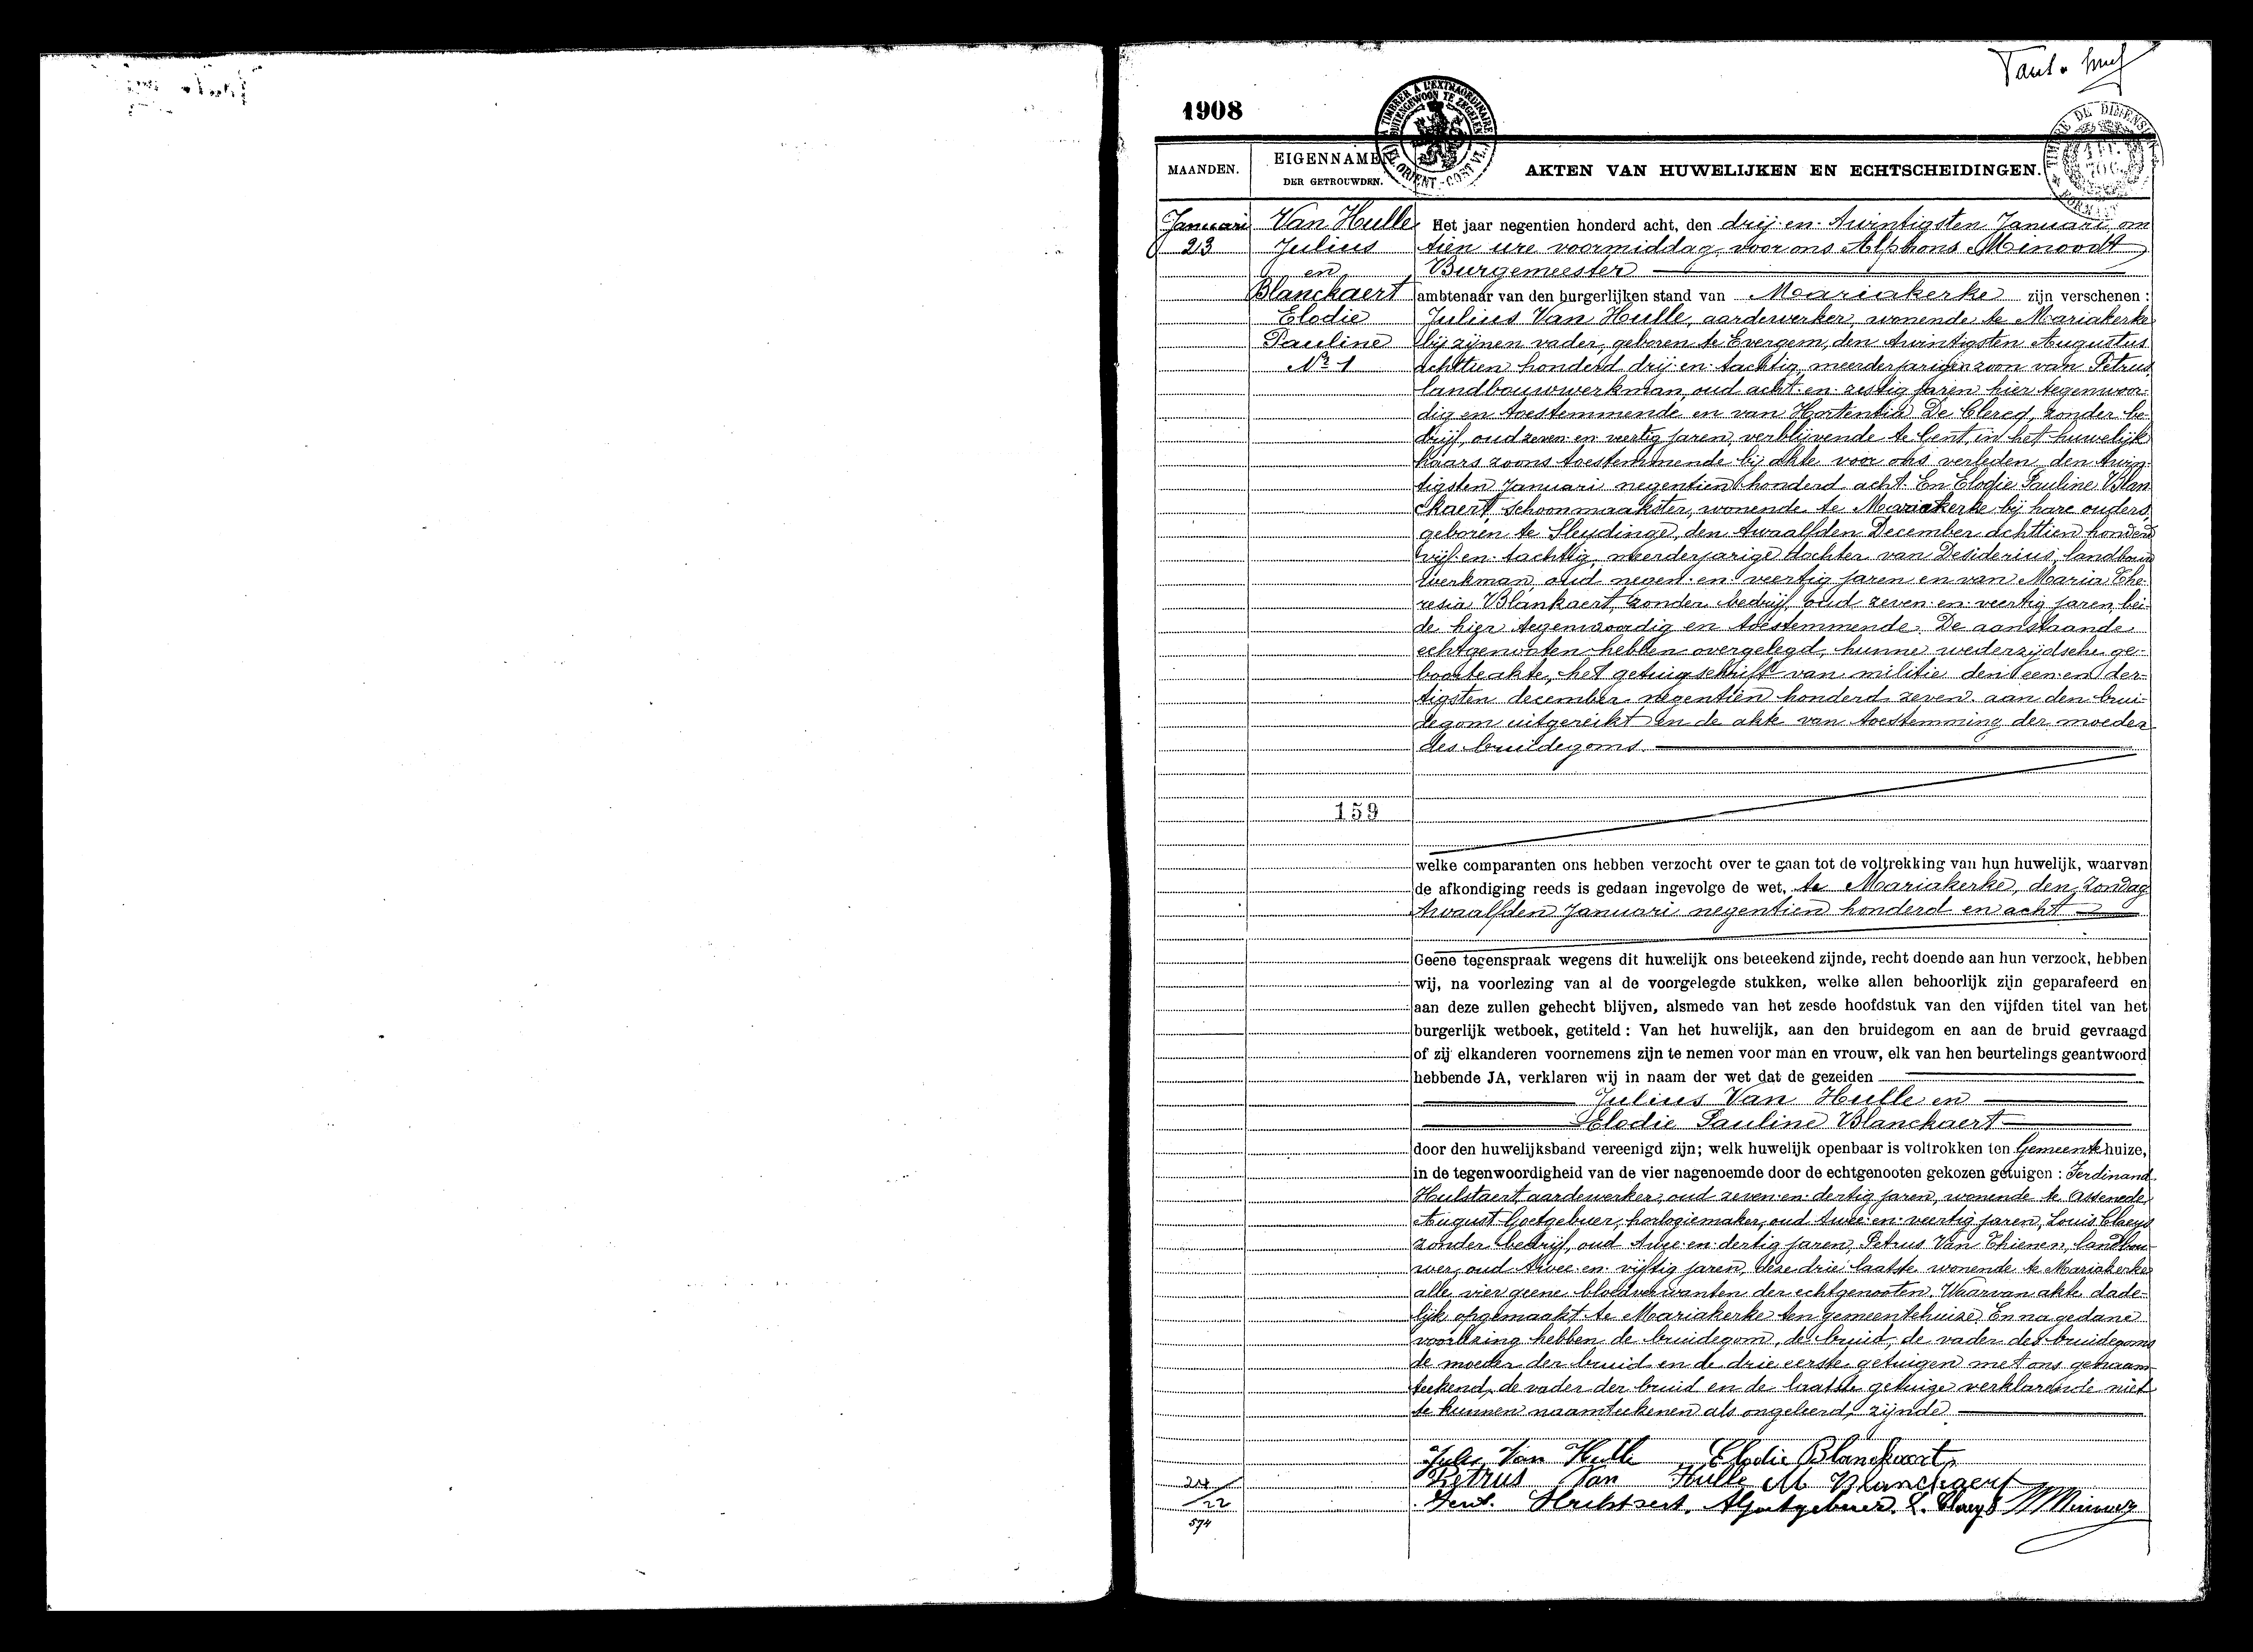 1908
MAANDEN.
EIGENNAMEN
DER GETROUWDEN.
AKTEN VAN HUWELIJKEN EN ECHTSCHEIDINGEN.
Januari
23
Van Hulle
Julius
en
Blanckaert
Elodie
Pauline
Nr 1
159
Het jaar negentien honderd acht, den drij-en-twintigsten Januari, om
tien ure voormiddag, voor ons Alphons Minoodt
Burgemeester
ambtenaar van den burgerlijken stand van Mariakerke zijn verschenen:
Julius Van Hulle, aardewerker, wonende te Mariakerke
bij zijnen vader, geboren te Evergem, den twintigsten Augustus
achttien honderd drij-en-tachtig, meerderjarigen zoon van Petrus
landbouwwerkman, oud acht-en-zestig jaren hier tegenwoor-
dig en toestemmende en van Hortentia De Clercq, zonder be-
drijf, oud zeven-en-veertig jaren, verblijvende te Gent, in het huwelijk
haars zoons toestemmende bij akte voor ons verleden den twin-
tigsten Januari negentien honderd acht. En Elodie Pauline Blan-
ckaert schoonmaakster, wonende te Mariakerke bij hare ouders,
geboren te Sleydinge, den twaalfden December achttien honderd
vijf-en-tachtig, meerderjarige dochter van Desiderius, landbouw
werkman, oud negen-en-veertig jaren en van Maria The-
resia Blankaert, zonder bedrijf, oud zeven-en-veertig jaren, bei-
de hier tegenwoordig en toestemmende. De aanstaande
echtgenooten hebben overgelegd, hunne wederzijdsche ge-
boorteakte, het getuigschrift van militie den een-en-der-
tigsten december negentien honderd zeven aan den brui-
degom uitgereikt en de akte van toestemming der moeder
des bruidegoms.
welke comparanten ons hebben verzocht over te gaan tot de voltrekking van hun huwelijk, waarvan
de afkondiging reeds is gedaan ingevolge de wet, te Mariakerke, den Zondag
twaalfden Januari negentien honderd en acht
Geene tegenspraak wegens dit huwelijk ons beteekend zijnde, recht doende aan hun verzoek, hebben
wij, na voorlezing van al de voorgelegde stukken, welke allen behoorlijk zijn geparafeerd en
aan deze zullen gehecht blijven, alsmede van het zesde hoofdstuk van den vijfden titel van het
burgerlijk wetboek, getiteld: Van het huwelijk, aan den bruidegom en aan de bruid gevraagd
of zij elkanderen voornemens zijn te nemen voor man en vrouw, elk van hen beurtelings geantwoord
hebbende JA, verklaren wij in naam der wet dat de gezeiden
Julius Van Hulle en
Elodie Pauline Blanckaert
door den huwelijksband vereenigd zijn; welk huwelijk openbaar is voltrokken ten Gemeentehuize,
in de tegenwoordigheid van de vier nagenoemde door de echtgenooten gekozen getuigen: Ferdinand
Hulstaert aardewerker, oud zeven-en-dertig jaren, wonende te Assenede,
August Goetgebuer, horlogiemaker, oud twee-en-veertig jaren, Louis Claeys
zonder bedrijf, oud twee-en-dertig jaren, Petrus Van Thienen, landbou-
wer, oud twee-en-vijftig jaren, deze drie laatste wonende te Mariakerke
alle vier geene bloedverwanten der echtgenooten. Waarvan akte dade-
lijk opgemaakt te Mariakerke ten gemeentehuize. En na gedane
voorlezing hebben de bruidegom, de bruid, de vader des bruidegoms
de moeder der bruid en de drie eerste getuigen met ons genaam-
teekend, de vader der bruid en de laatste getuige verklarende niet
te kunnen naamteekenen als ongeleerd zijnde
Jules Van Hulle Elodie Blanckaert
Petrus Van Hulle M Blanckaert
Ferd. Hulstaert. AGoetgebuer. L. Claeys
22
574